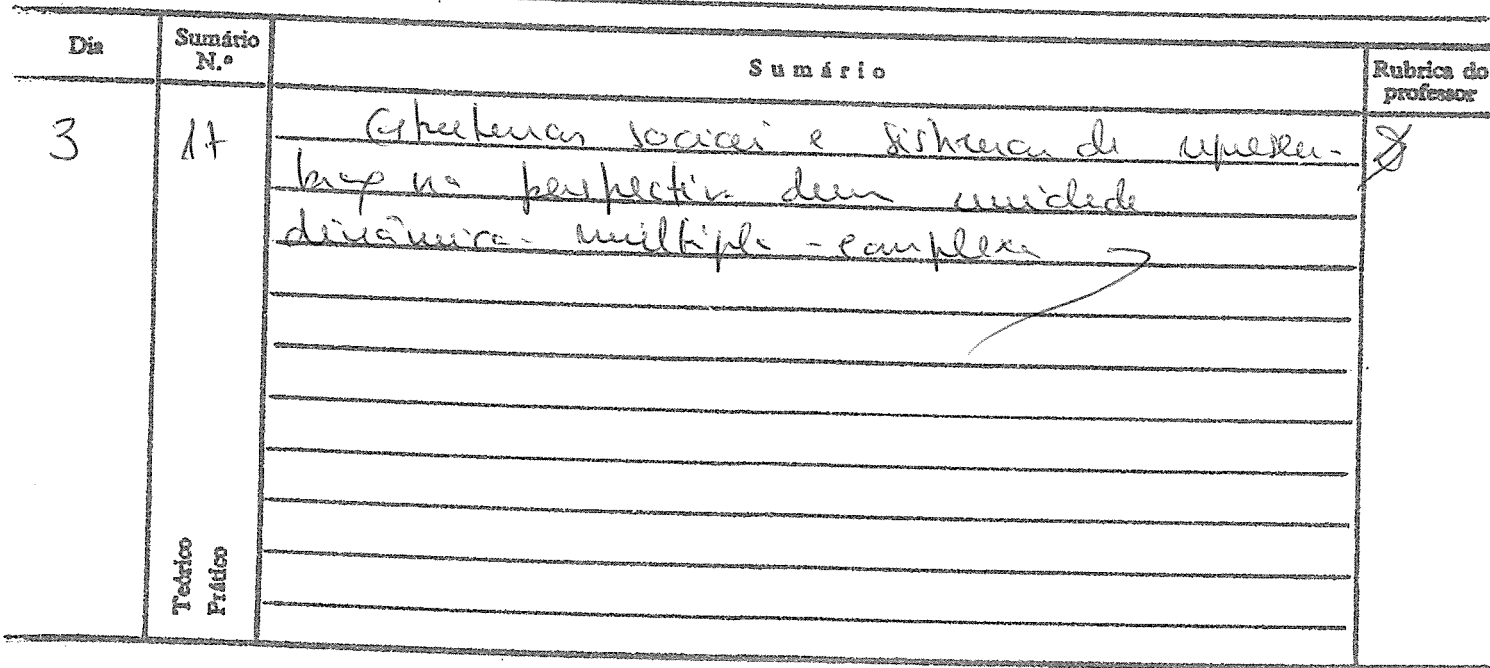 Dia
Sumário N.º
Sumário
Rubrica do professor
3
17
Estruturas sociais e Sistemas de represen-
tação na perspectiva duma unidade
dinâmica - múltipla - complexa
Teórico
Prático